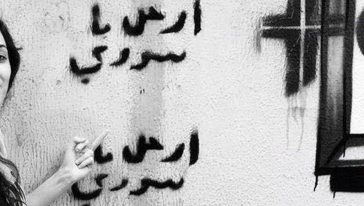 ارحل يا
سوري
ارحل يا
سوري